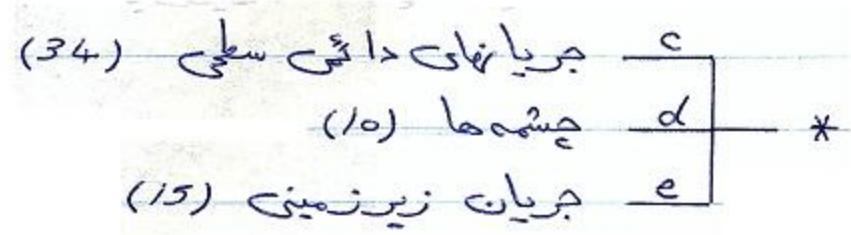 c جریانهای دائمی سطحی (34)
* d چشمه ها (10)
e جریان زیرزمینی (15)